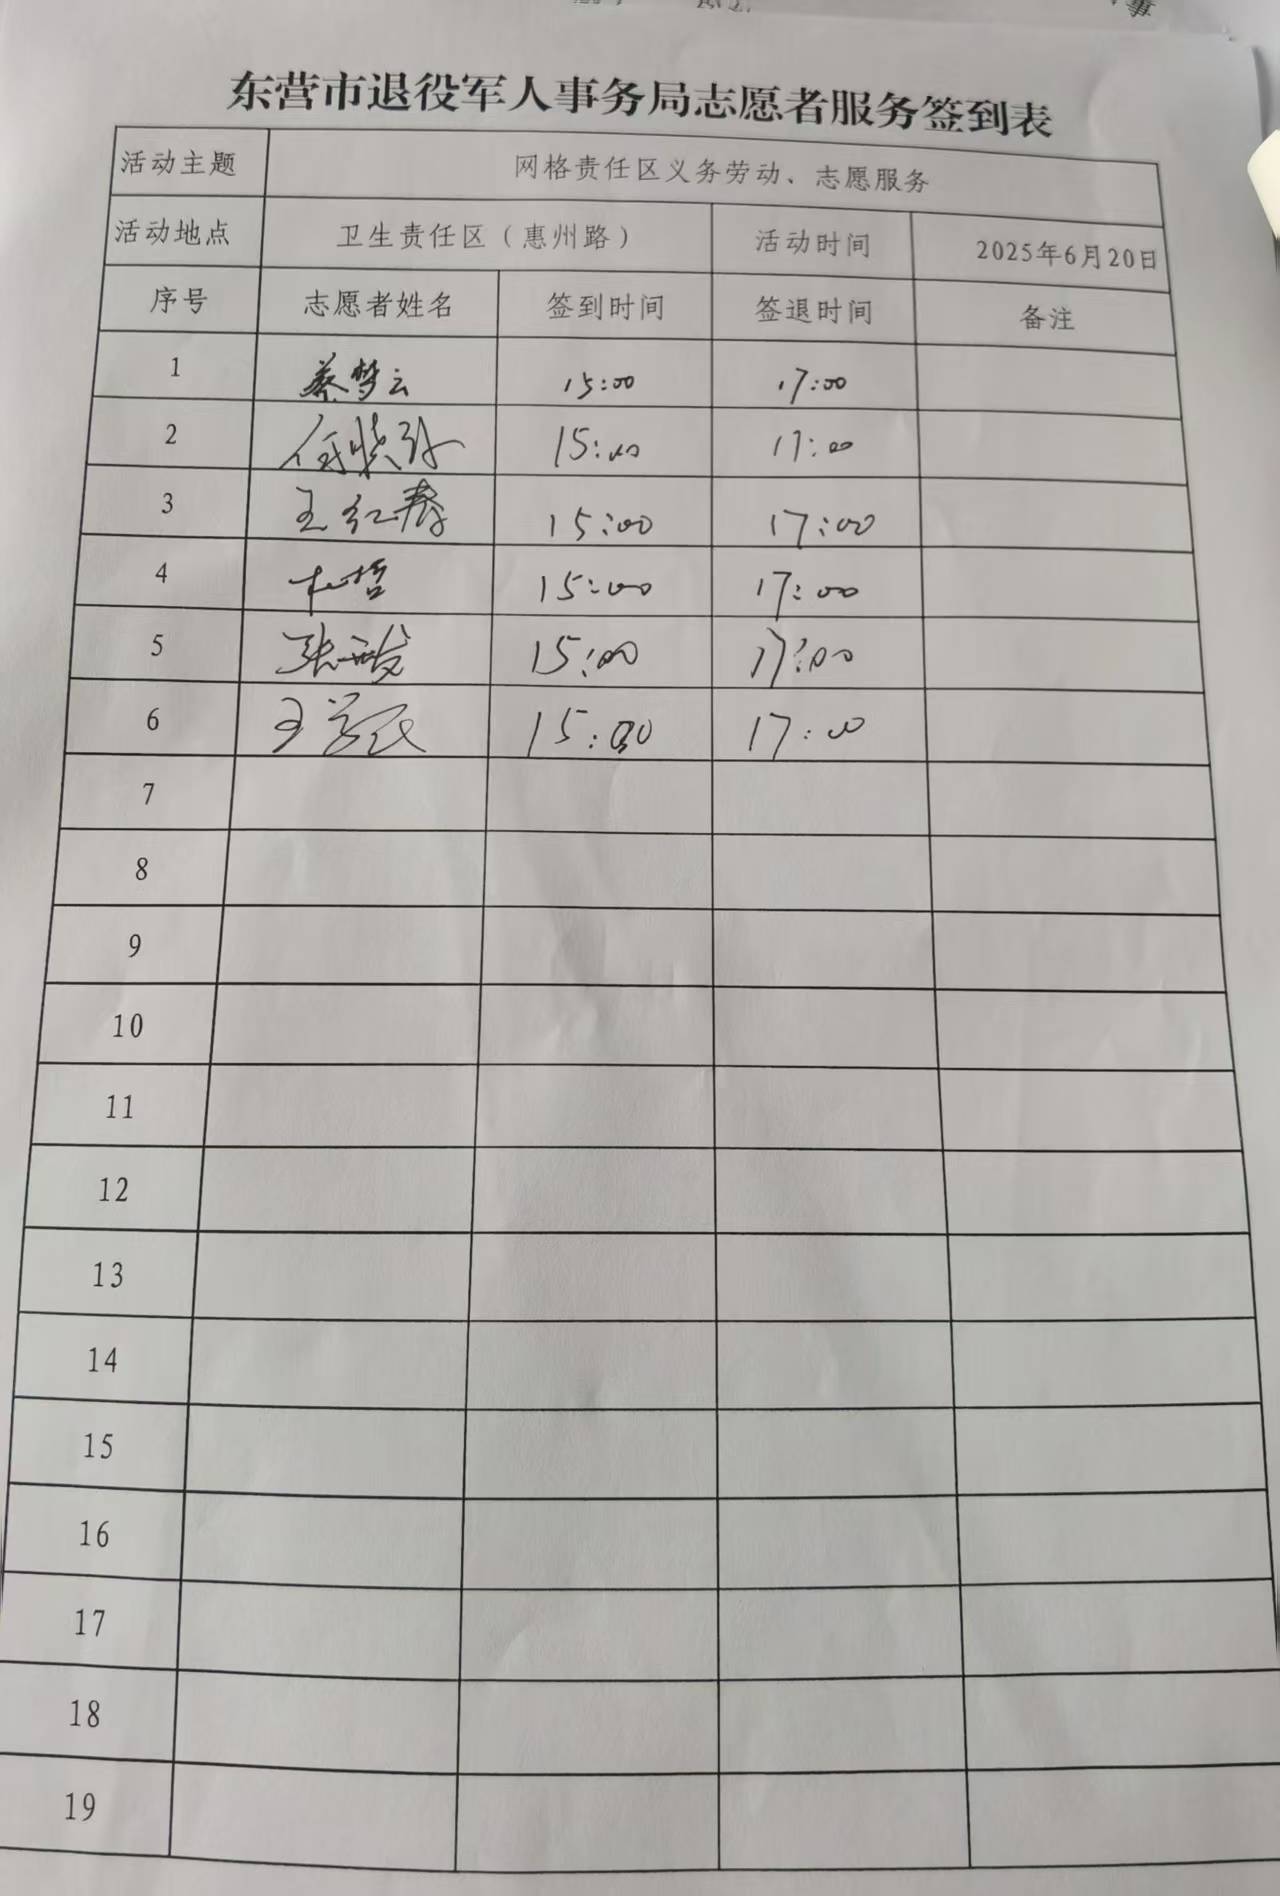 东营市退役军人事务局志愿者服务签到表
活动主题 网格责任区义务劳动、志愿服务
活动地点 卫生责任区（惠州路） 活动时间 2025年6月20日
序号 志愿者姓名 签到时间 签退时间 备注
1 蔡梦云 15:00 17:00
2 15:00 17:00
3 王红春 15:00 17:00
4 杜哲 15:00 17:00
5 15:00 17:00
6 15:00 17:00
7
8
9
10
11
12
13
14
15
16
17
18
19